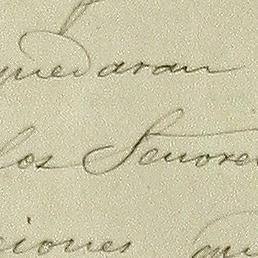 quedaran
los Señores
ciones que